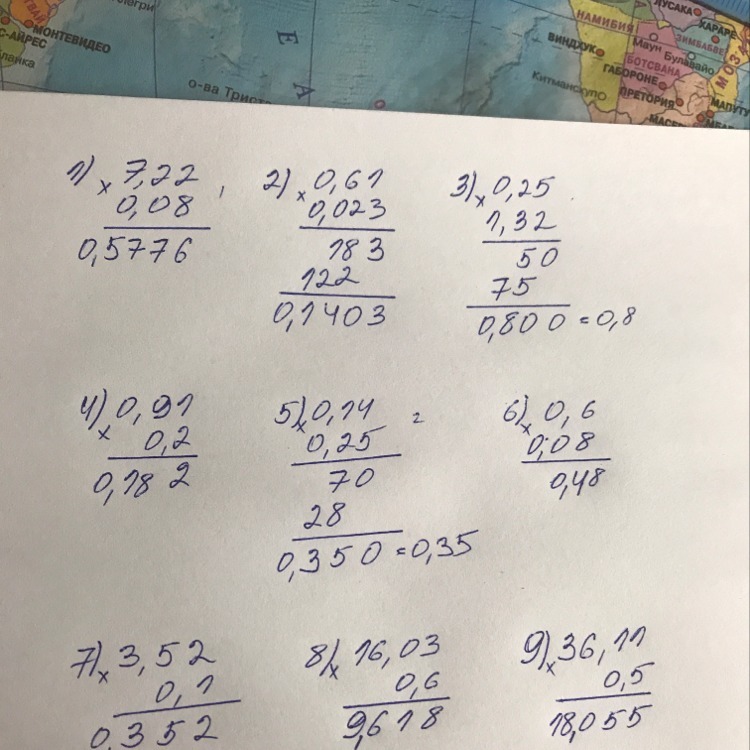 легри
НАМИБИЯ
ЛУСАКА
ХАРАРЕ
МОНТЕВИДЕО
С-АЙРЕС
ланка
Е
А
ВИНДХУК
Маун
Булавайо
ЗИМБАБВЕ
БОТСВАНА
ГАБОРОНЕ
Китмансхуп
ПРЕТОРИЯ
МАПУТУ
МОЗ
МАСЕ
МБА
о-ва Трист
1) × 7,22
0,08
0,5776
2) × 0,61
0,023
183
122
0,1403
3) × 0,25
1,32
50
75
0,800 = 0,8
4) × 0,91
0,2
0,182
5) × 0,14 =
0,25
70
28
0,350 = 0,35
6) × 0,6
0,08
0,48
7) × 3,52
0,1
0,352
8) × 16,03
0,6
9,618
9) × 36,11
0,5
18,055